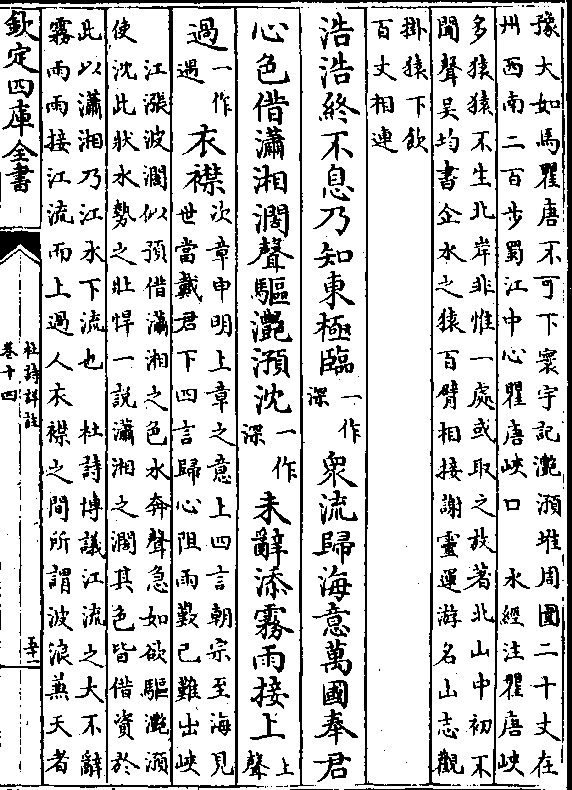 豫大如馬瞿唐不可下寰宇記灔澦堆周圍二十丈在
州西南二百步蜀江中心瞿唐峽口　水經注瞿唐峽
多猿猿不生北岸非惟一處或取之放著北山中初不
聞聲吴均書企水之猿百臂相接謝靈運游名山志觀
掛猿下飲
百丈相連
浩浩終不息乃知東極臨
一作
深
衆流歸海意萬國奉君
心色借瀟湘濶聲驅灔澦沈
一作
深
未辭添霧雨接上
上
聲
過
一作
過
衣襟
次章申明上章之意上四言朝宗至海見
世當戴君下四言歸心阻雨歎己難出峽
江漲波濶似預借瀟湘之色水奔聲急如欲驅灔澦
使沈此狀水勢之壯悍一說瀟湘之濶其色皆借資於
此以瀟湘乃江水下流也　杜詩博議江流之大不辭
霧雨雨接江流而上過人衣襟之間所謂波浪蒸天者
欽定四庫全書
杜詩詳註
卷十四
五十一